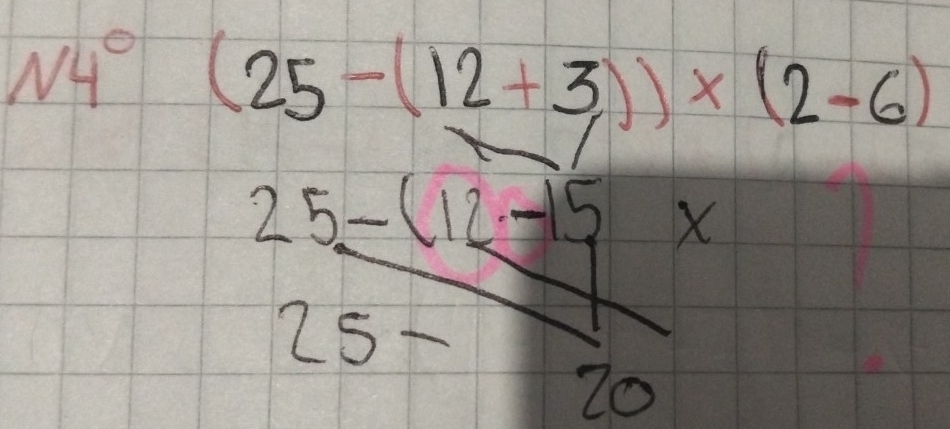 N4° (25-(12+3))×(2-6)
25-(12-15 × ?
25-
20